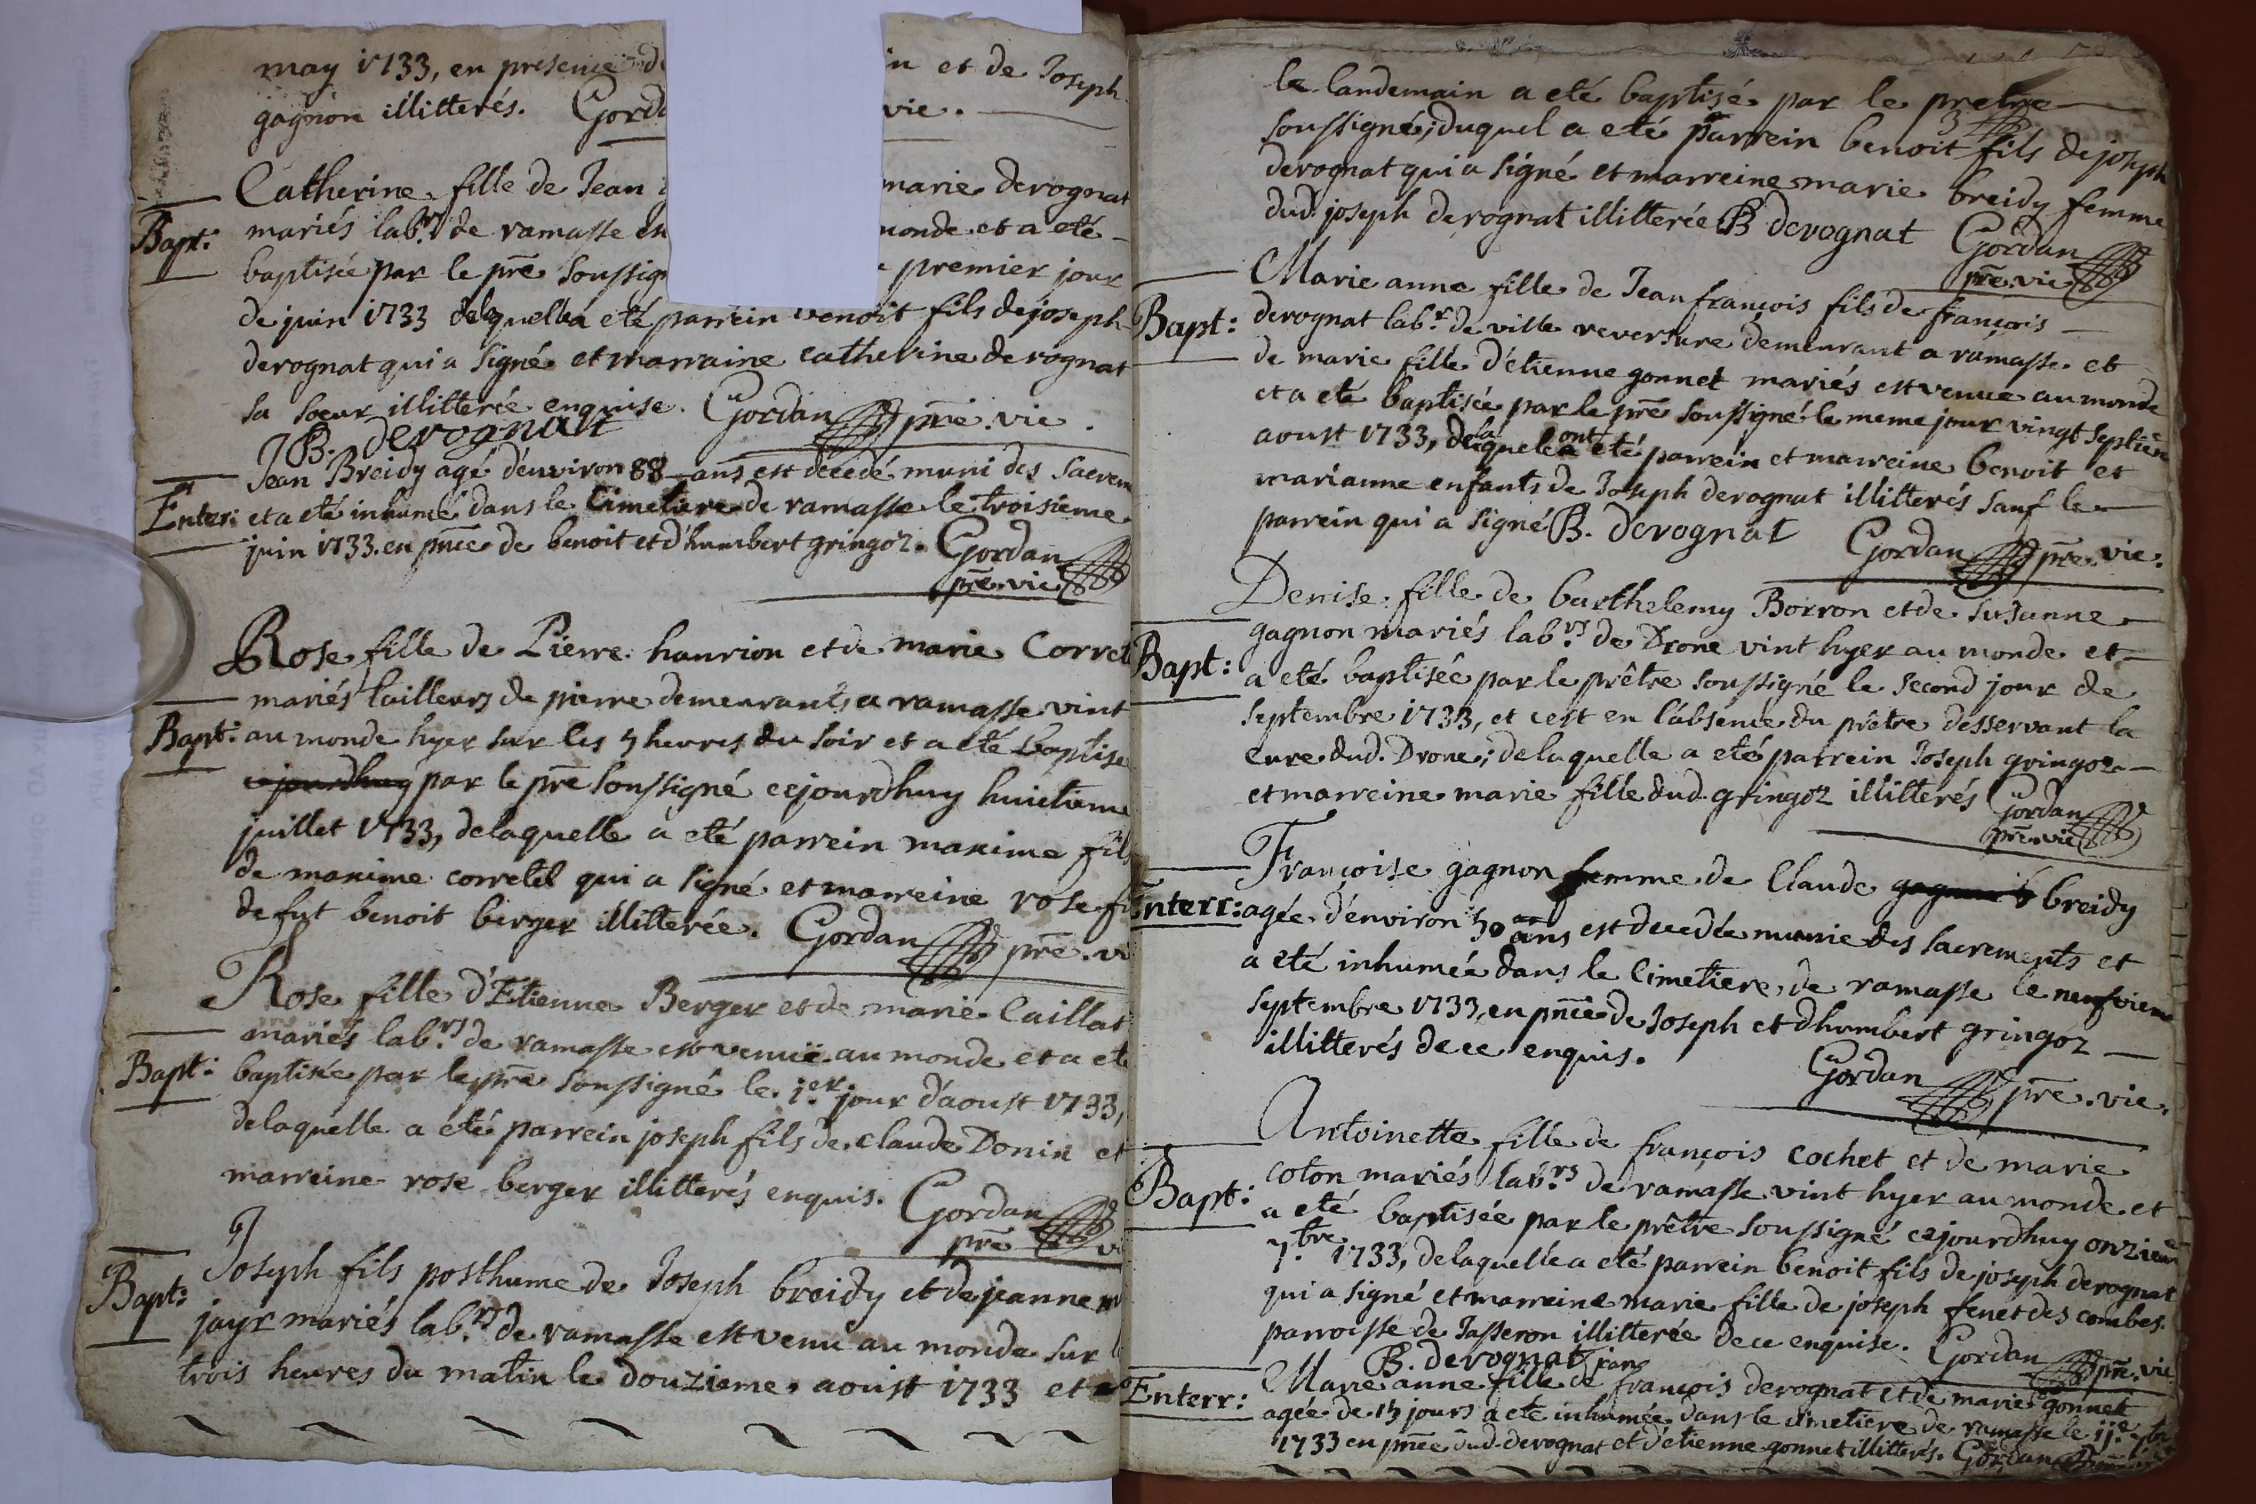 may 1733, en presence d in et de Joseph
gagnon illitterés. Gord vie.
Catherine fille de Jean marie derognat
Bapt: mariés lab.rs de ramasse en monde et a eté
baptisée par le pre soussign premier jour
de juin 1733 delaquella eté parrein benoit fils de joseph
derognat qui a signé et marraine catherine derognat
sa soeur illitterée enquise. Gordan pre. vic.
B. derognat
Jean Breidy agé d'environ 88 ans est decedé muni des sacrem
Enter: et a eté inhumé dans le cimetiere de ramasse le troisieme
juin 1733. en pnce de benoit et d'humbert gringoz. Gordan
pre. vic
Rose fille de Pierre hanrion et de marie Corret
mariés tailleurs de pierre demeurants a ramasse vint
Bapt: au monde hyer sur les 5 heures du soir et a eté baptise
cejourdhuy par le pre soussigné cejourdhuy huictieme
juillet 1733, delaquelle a eté parrein maxime fils
de maxime corretel qui a signé et marreine rose fi
de fut benoit berger illitterée. Gordan pre. vi
Rose fille d'Etienne Berger et de marie Caillat
mariés lab.rs de ramasse est venuë au monde et a eté
Bapt: baptisée par le pre soussigné le 1.er jour d'aoust 1733,
delaquelle a été parrein joseph fils de claude Donin et
marreine rose berger illitterés enquis. Gordan
pre vi
Joseph fils posthume de Joseph breidy et de jeanne m
Bapt: jayr mariés lab.rs de ramasse est venu au monde sur l
trois heures du matin le douzieme aoust 1733 et
le landemain a eté baptisé par le pretre
soussigné; duquel a eté parrein benoit fils de joseph
derognat qui a signé et marreine marie breidy femme
dud. joseph derognat illitterée B derognat Gordan
pre. vic
Marie anne fille de Jean françois fils de françois
Bapt: derognat lab.r de ville reversure demeurant a ramasse et
de marie fille d'etienne gonnet mariés est venue au monde
et a eté baptisée par le pre soussigné le meme jour vingt septie
aoust 1733, delaquele ont eté parrein et marreine benoit et
marianne enfants de Joseph derognat illitterés sauf le
parrein qui a signé B. derognat Gordan pre. vic.
Denise fille de barthelemy Borron et de susanne
gagnon mariés lab.rs de Drone vint hyer au monde et
Bapt: a eté baptisée par le prêtre soussigné le second jour de
septembre 1733, et c'est en l'absence du prêtre desservant la
cure dud. Drone; delaquelle a eté parrein Joseph gringoz
et marreine marie fille dud. gringoz illitterés Gordan
pre. vic
Françoise gagnon femme de Claude breidy
Enterr: agée d'environ 50 ans est decedée munie des sacrements et
a eté inhumée dans le cimetiere de ramasse le neufvieme
septembre 1733, en pnce de Joseph et d'humbert gringoz
illitterés de ce enquis.
Gordan pre. vic.
Antoinette fille de françois cochet et de marie
coton mariés lab.rs de ramasse vint hyer au monde et
Bapt: a eté baptisée par le prêtre soussigné cejourdhuy onzieme
7.bre 1733, delaquelle a eté parrein benoit fils de joseph derognat
qui a signé et marreine marie fille de joseph fenet des combes
parroisse de Jasseron illitterée de ce enquise. Gordan pre. vic
B. derognat
jean
Enterr: Marie anne fille de françois derognat et de marie gonnet
agée de 15 jours a eté inhumée dans le cimetiere de ramasse le 11.e 7.bre
1733 en pnce dud. derognat et d'etienne gonnet illitterés. Gordan